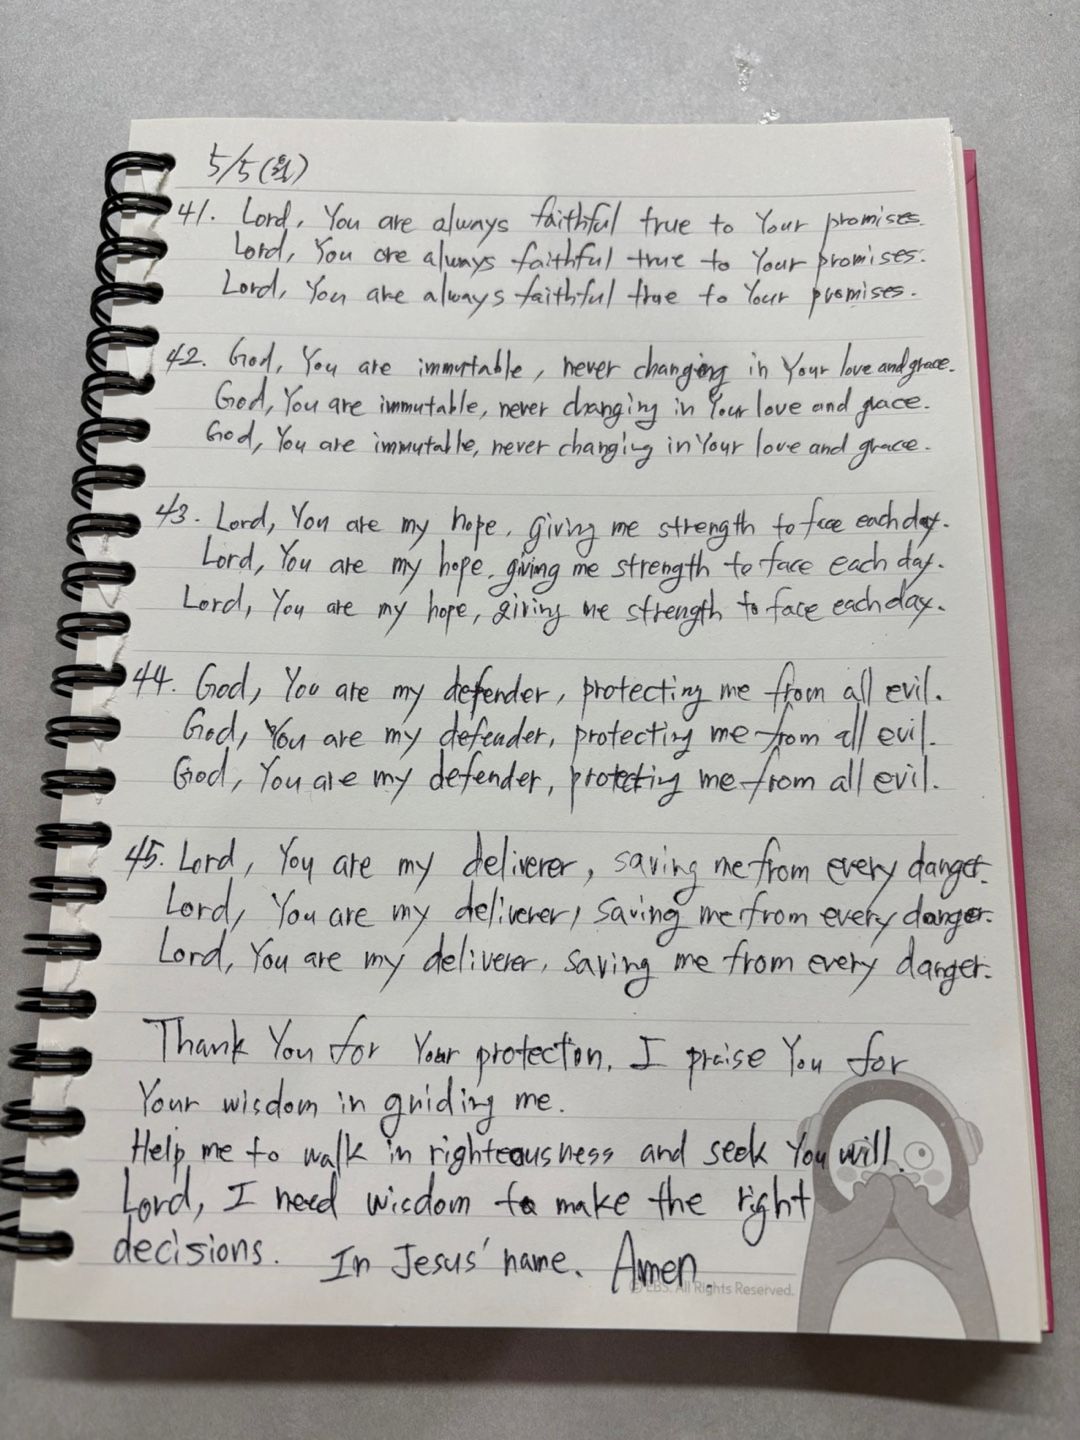 5/5(월)
41. Lord, You are always faithful true to Your promises.
Lord, You are always faithful true to Your promises.
Lord, You are always faithful true to Your promises.
42. God, You are immutable, never changing in Your love and grace.
God, You are immutable, never changing in Your love and grace.
God, You are immutable, never changing in Your love and grace.
43. Lord, You are my hope, giving me strength to face each day.
Lord, You are my hope, giving me strength to face each day.
Lord, You are my hope, giving me strength to face each day.
44. God, You are my defender, protecting me from all evil.
God, You are my defender, protecting me from all evil.
God, You are my defender, protecting me from all evil.
45. Lord, You are my deliverer, saving me from every danger.
Lord, You are my deliverer, saving me from every danger.
Lord, You are my deliverer, saving me from every danger.
Thank You for Your protection, I praise You for
Your wisdom in guiding me.
Help me to walk in righteousness and seek You will.
Lord, I need wisdom to make the right
decisions. In Jesus' name. Amen.
© EBS. All Rights Reserved.